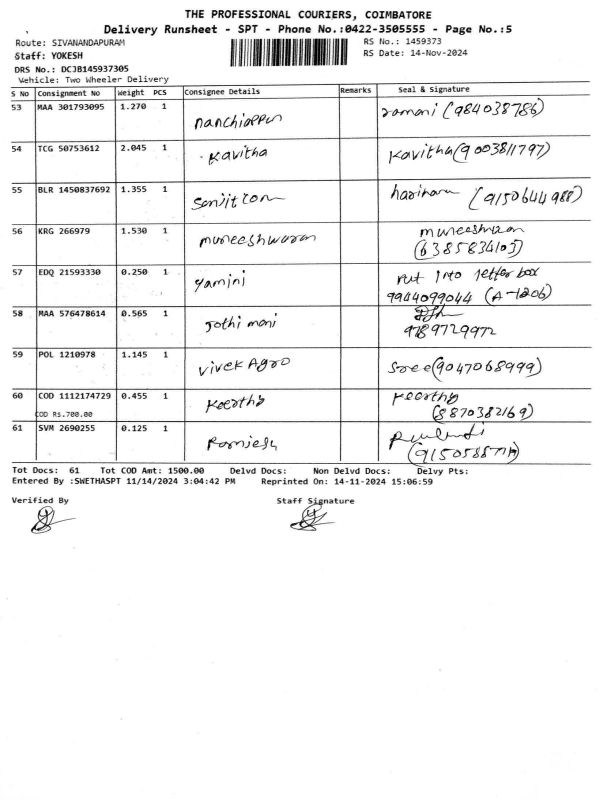 THE PROFESSIONAL COURIERS, COIMBATORE
Delivery Runsheet - SPT - Phone No.:0422-3505555 - Page No.:5
Route: SIVANANDAPURAM
RS No.: 1459373
Staff: YOKESH
RS Date: 14-Nov-2024
DRS No.: DCJB145937305
Vehicle: Two Wheeler Delivery
S No Consignment No Weight PCS Consignee Details Remarks Seal & Signature
53 MAA 301793095 1.270 1 nanchiappan ramani (984038786)
54 TCG 50753612 2.045 1 Kavitha Kavitha(9003811797)
55 BLR 1450837692 1.355 1 hariharan (9150644988)
56 KRG 266979 1.530 1 muneeshwaran muneeshwaran
(6385834103)
57 EDQ 21593330 0.250 1 yamini Put into letter box
9944099044 (A-1206)
58 MAA 576478614 0.565 1 Jothi mani
9789729972
59 POL 1210978 1.145 1 Vivek Agro Sree(9047068999)
60 COD 1112174729 0.455 1 Keerthy Keerthy
COD Rs.700.00 (8870382169)
61 SVM 2690255 0.125 1
Tot Docs: 61 Tot COD Amt: 1500.00 Delvd Docs: Non Delvd Docs: Delvy Pts:
Entered By :SWETHASPT 11/14/2024 3:04:42 PM Reprinted On: 14-11-2024 15:06:59
Verified By Staff Signature